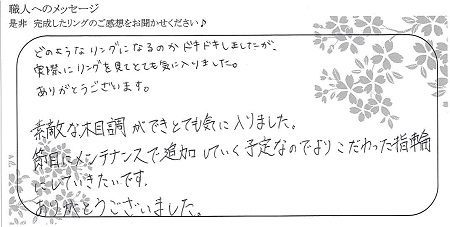 職人へのメッセージ
是非 完成したリングのご感想をお聞かせください♪
どのようなリングになるのかドキドキしましたが、
実際にリングを見てとても気に入りました。
ありがとうございます。
素敵な木目調ができとても気に入りました。
節目にメンテナンスで追加していく予定なのでよりこだわった指輪
にしていきたいです。
ありがとうございました。